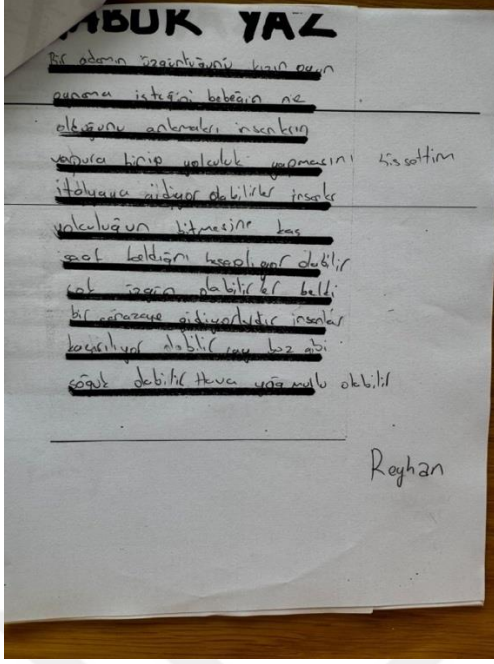 ABUK YAZ
Bir adamın üzgünlüğünü kızın oyun
oynama isteğini bebeğin ne
olduğunu anlamaları insanların
vapura binip yolculuk yapmasını hissettim
italyaya gidiyor olabilirler insanlar
yolculuğun bitmesine kaç
saat kaldığını hesaplıyor olabilir
çok üzgün olabilirler belki
bir cenazeye gidiyorlardır insanlar
kaçırılıyor olabilir çay buz gibi
soğuk olabilir Hava yağmurlu olabilir
Reyhan